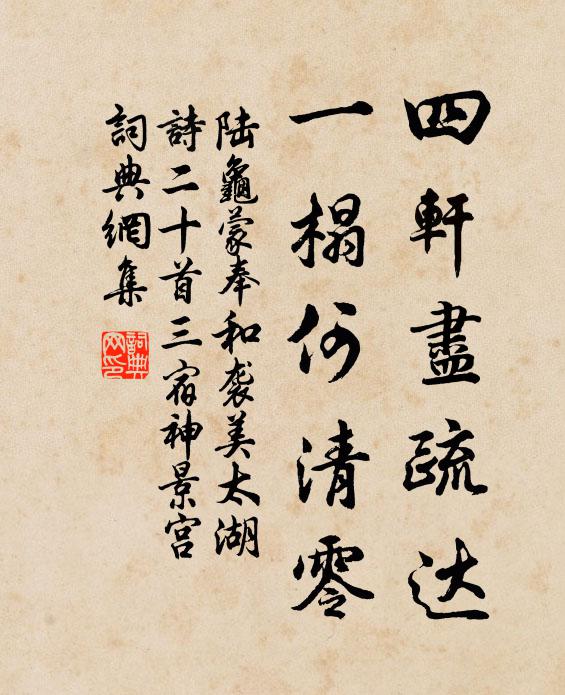 四軒盡疏达
一榻何清零
陆龜蒙奉和袭美太湖
詩二十首三宿神景宫
詞典網集
詞典